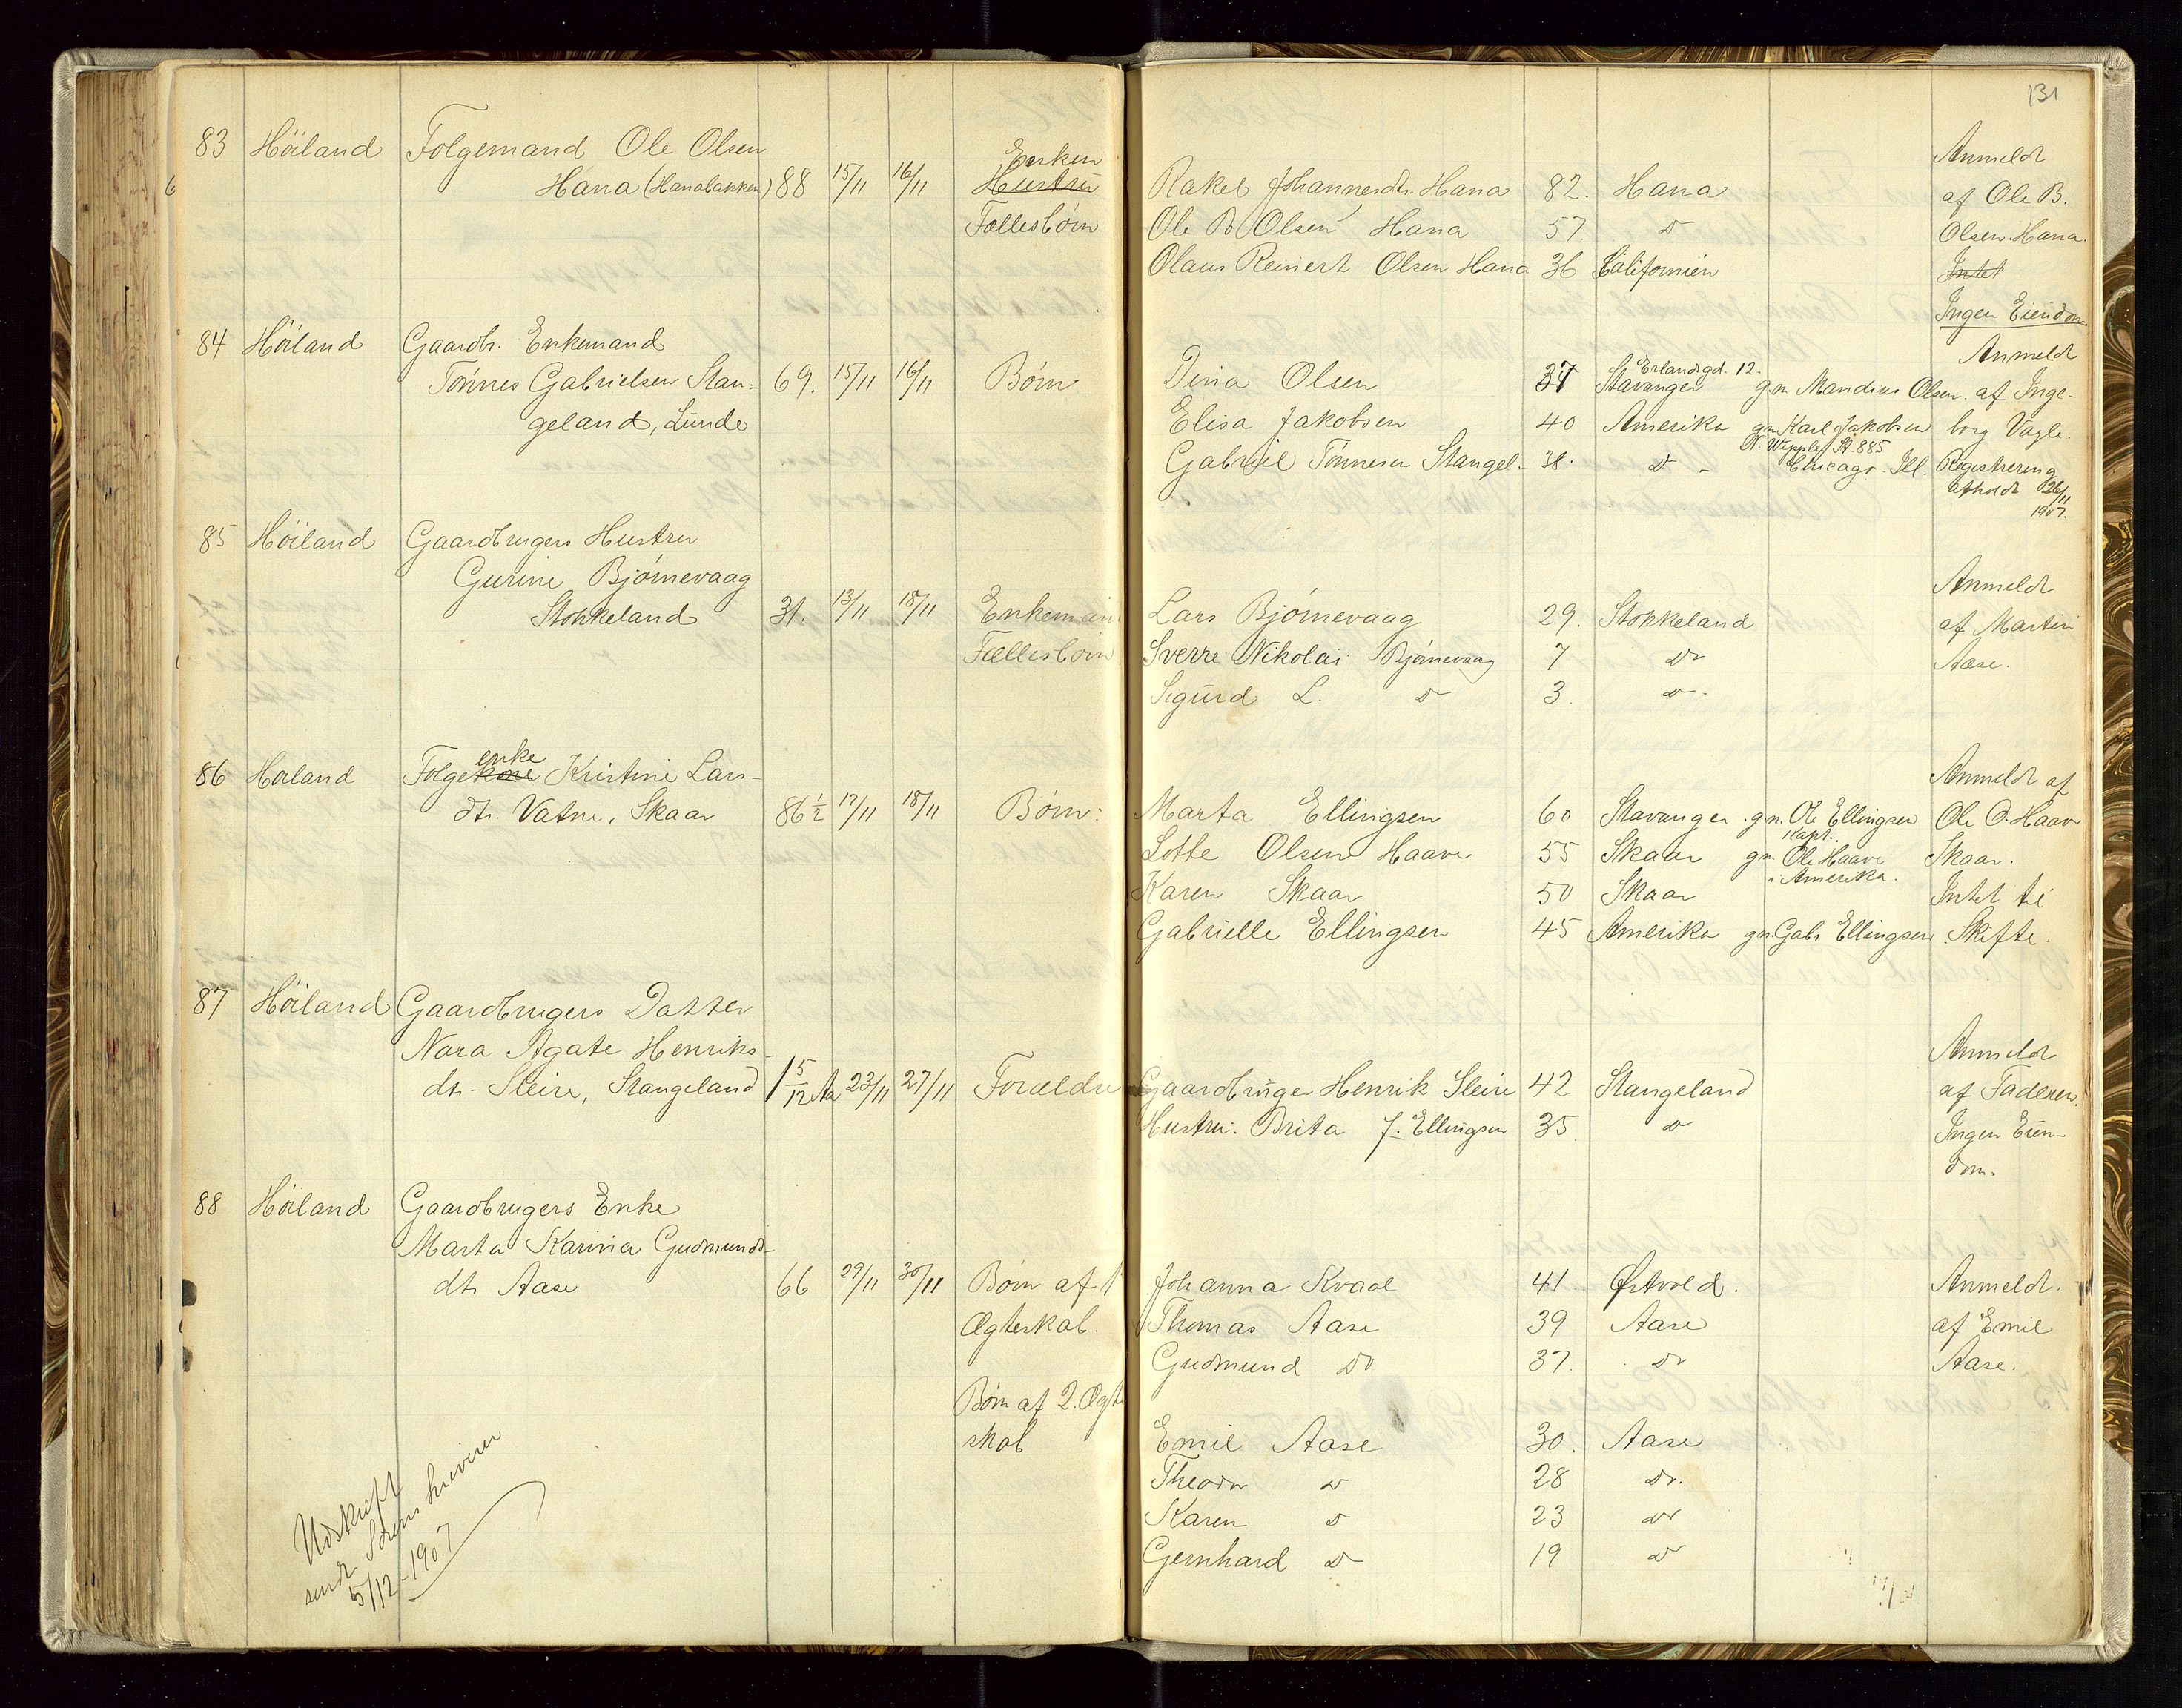 131
83 Höiland Folgemand Ole Olsen
Hana (Hanabakken) 88 15/11 16/11 Enken Hustru Rakel Johannesdtr. Hana 82. Hana Anmeldt af Ole B.
Fællesbörn Ole B Olsen Hana 57. D Olsen Hana.
Olaus Reinert Olsen Hana 36 Californien Intet
Ingen Eiendom
84 Höiland Gaardbr. Enkemand Anmeldt
Tönnes Gabrielsen Stan- 69. 15/11 16/11 Börn Dina Olsen 37 Stavanger Erlandsgd. 12. g.m. Mandius Olsen. af Inge-
geland, Lunde Elisa Jakobsen 40 Amerika gm Karl Jakobsen borg Vagle.
N. Wipple St. 885
Gabriel Tönnesen Stangel. 38. D - Chicago. Ill. Registrering
afholdt 26/11
1907.
85 Höiland Gaardbrugers Hustru
Gurine Björnevaag Anmeldt
Stokkeland 31. 13/11 18/11 Enkemand Lars Björnevaag 29. Stokkeland af Martin
Fællesbörn Sverre Nikolai Björnevaag 7 Do Aase.
Sigurd L. D 3. D.
enke
86 Höiland Folgekone Kristine Lars- Anmeldt af
dtr. Vatne, Skaar 86 1/2 17/11 18/11 Börn: Marta Ellingsen 60 Stavanger gm. Ole Ellingsen Ole O. Haave
Kapt.
Lotte Olsen Haave 55 Skaar gm. Ole Haave Skaar.
i Amerika.
Karen Skaar 50 Skaar Intet til
Gabrielle Ellingsen 45 Amerika gm. Gabr Ellingsen Skifte.
87 Höiland Gaardbrugers Datter
Nora Agate Henriks- Anmeldt
dtr. Sleire, Stangeland 1 5/12 Aa 23/11 27/11 Forældre Gaardbruger Henrik Sleire 42 Stangeland af Faderen.
Hustru: Brita J. Ellingsen 35. D Ingen Eien-
dom.
88 Höiland Gaardbrugers Enke
Marta Karina Gudmunds-
dtr Aase 66 29/11 30/11 Börn af 1 Johanna Kvaal 41 Østvold. Anmeldt.
Ægteskab. Thomas Aase 39 Aase af Emil
Gudmund Do 37. Do Aase.
Börn af 2. Ægte
skab Emil Aase 30. Aase
Theodor D 28 Do.
Karen D 23 Do
Gernhard D 19 D
Udskrift
sendt Sorenskriveren
5/12-1907